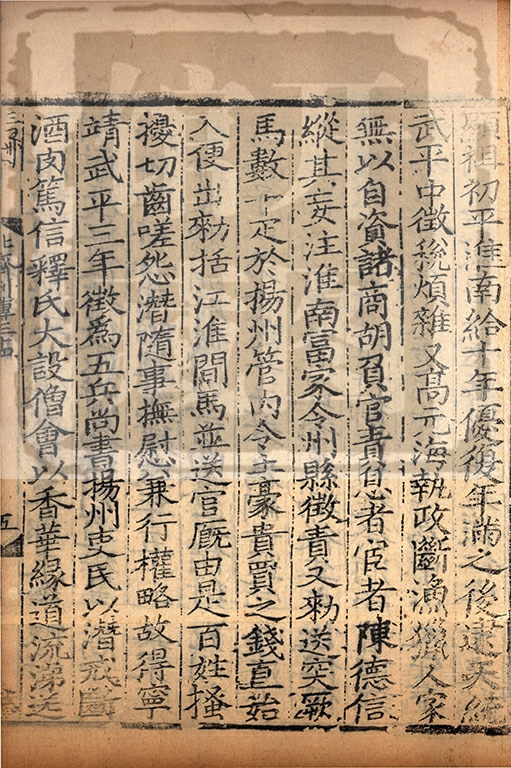 顯祖初平淮南給十年優復年滿之後逮天統
武平中徵稅煩雜又高元海執政斷漁獵人家
無以自資諸商胡負官責息者宦者陳德信
縱其妄注淮南富家令州縣徵責又勑送突厥
馬數千疋於揚州管內令土豪貴買之錢直始
入便出勑括江淮間馬並送官廐由是百姓搔
擾切齒嗟怨潛隨事撫慰兼行權略故得寧
靖武平三年徵為五兵尚書揚州吏民以潛戒斷
酒肉篤信釋氏大設僧會以香華緣道流涕送
五